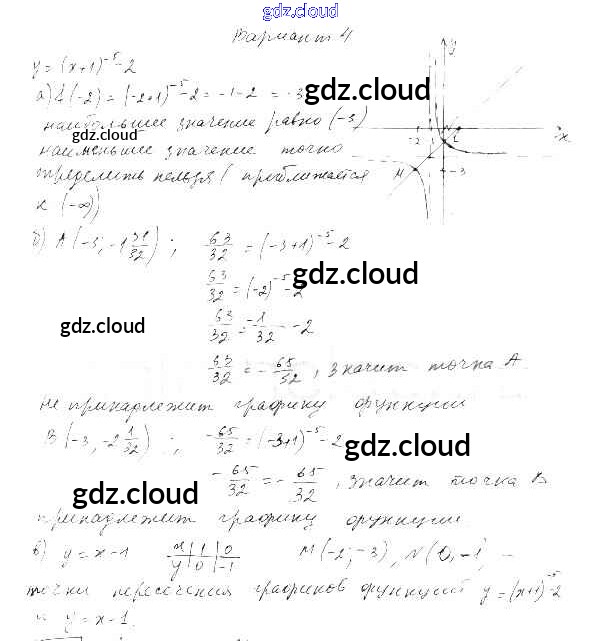 gdz.cloud
Вариант 4
y = (x+1)^-5 - 2
а) f(-2) = (-2+1)^-5 - 2 = -1-2 = -3
gdz.cloud
наибольшее значение равно (-3)
gdz.cloud
наименьшее значение точно
определить нельзя (приближается
к (-∞))
y
x
-2
-3
M
б) A(-3; -1 31/32) ; 63/32 = (-3+1)^-5 - 2
63/32 = (-2)^-5 - 2
gdz.cloud
gdz.cloud
63/32 = -1/32 - 2
63/32 = - 65/32, значит точка A
не принадлежит графику функции
B(-3, -2 1/32) ; -65/32 = (-3+1)^-5 - 2
gdz.cloud
- 65/32 = - 65/32, значит точка B
gdz.cloud
принадлежит графику функции.
в) y = x-1 x | 1 | 0 M(-2; -3), N(0, -1) -
y | 0 | -1
точки пересечения графиков функций y = (x+1)^-5 - 2
и y = x-1.